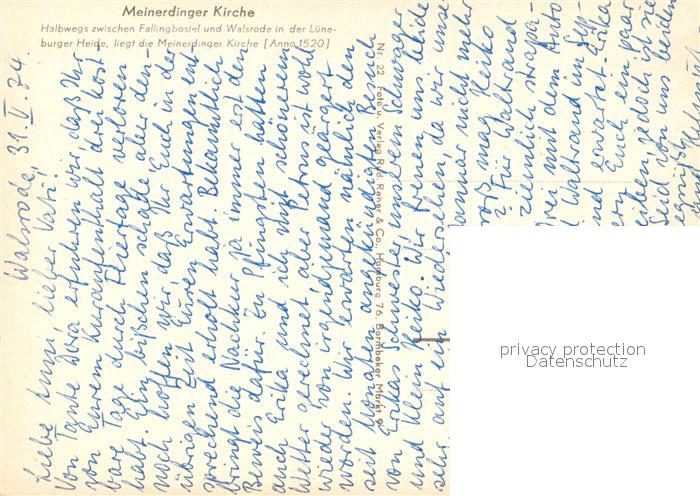 Meinerdinger Kirche
Halbwegs zwischen Fallingbostel und Walsrode in der Lüne-
burger Heide, liegt die Meinerdinger Kirche [Anno 1520]
Walsrode, 31.V.74
Liebe Anni, lieber Vati!
Von Tante Dora erfuhren wir, daß Ihr
von Eurem Kuraufenthalt drei kost-
bare Tage durch Feiertage verloren
habt. Ein bißchen schade, aber den-
noch hoffen wir, daß Ihr Euch in der
übrigen Zeit Euren Erwartungen ent-
sprechend erholt habt. Bekanntlich
bringt die Nachkur ja immer erst den
Beweis dafür. Zu Pfingsten hätten
auch Erika und ich mit schönerem
Wetter gerechnet, aber Petrus ist wohl
wieder von irgendjemand geärgert
worden. Wir erwarten nämlich den
seit Monaten angekündigten Besuch
von Erikas Schwester, unserem Schwager
und klein Heiko. Wir freuen uns beide
sehr auf ein Wiedersehen, da wir uns
Januar nicht mehr
groß mag Heiko
? Für Waltraud
ziemlich strapa-
Drei mit dem Auto
Waltraud im Sep-
erwartet. Erika
Euch ein paar
jedoch ist sie
Seid von uns beiden
Nr. 22 Foto u. Verlag Rud. Reher & Co., Hamburg 76, Barmbeker Markt
privacy protection
Datenschutz